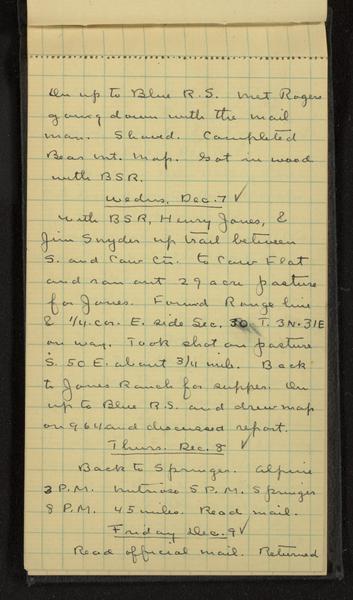 On up to Blue R.S. Met Rogers
going down with the mail
man. Shaved. Completed
Bear Mt. map. Got in wood
with BSR.
Wednes, Dec. 7 ✓
With BSR, Henry Jones, &
Jim Snyder up trail between
S. and Cow Cn. to Cow Flat
and ran out 29 acre pasture
for Jones. Found Range line
& 1/4 cor. E. side Sec. 30 T. 3N.31E
on way. Took shot on pasture
S. 50 E. about 3/4 mile. Back
to Jones Ranch for supper. On
up to Blue R.S. and drew map
on 964 and discussed report.
Thurs. Dec. 8 ✓
Back to Springer. Alpine
3 P.M. Nutrioso 5 P.M. Springer
8 P.M. 45 miles. Read mail.
Friday Dec. 9 ✓
Read official mail. Returned